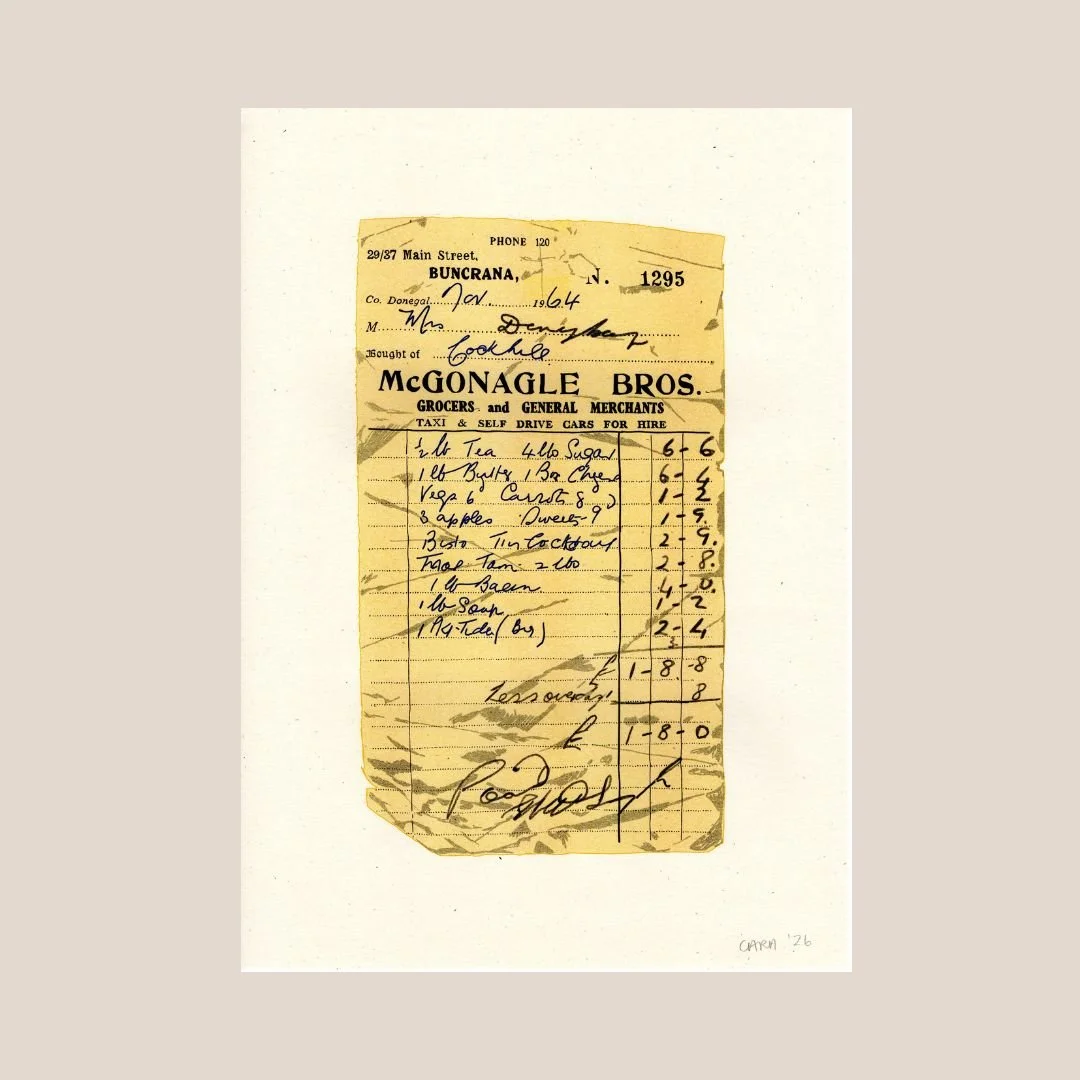 PHONE 120
29/37 Main Street,
BUNCRANA, N. 1295
Co. Donegal Nov. 1964
M Mrs
Bought of Cockhill
McGONAGLE BROS.
GROCERS and GENERAL MERCHANTS
TAXI & SELF DRIVE CARS FOR HIRE
½ lb Tea 4lbs Sugar 6-6
1 lb Butter 1 Box Cheese 6-4
Vegs 6 Carrots 8 1-2
3 apples Sweets-9 1-9.
Bisto Tin Cocktail 2-9.
Tom 2 lbs 2-8.
1 lb Bacon 4-0.
1 lb Soap 1-2
1 Pkg Tide (Big) 2-4
£ 1-8-8
Less 8
£ 1-8-0
Paid
CIARA '26